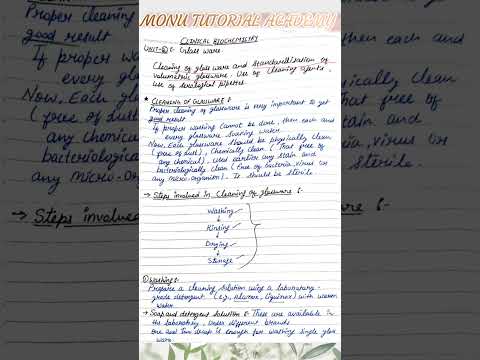 MONU TUTORIAL ACADEMY
CLINICAL BIOCHEMISTRY
UNIT-⑥ :- Glass ware.
Cleaning of glass ware and standardization of
volumetric glassware, Use of Cleaning agents,
Use of serological pipettes.
CLEANING OF GLASSWARE :-
Proper cleaning of glassware is very important to get
good result
If proper washing cannot be done, then each and
every glassware during water.
Now, Each glassware should be physically clean
(free of dust), Chemically clean (That free of
any chemical), used earlier any stain and
bacteriologically clean (free of bacteria, virus or
any micro-organism). It should be sterile
→ Steps involved In Cleaning of glassware :-
Washing
↓
Rinsing
↓
Drying
↓
Storage
① Washing :-
Prepare a cleaning solution using a laboratory-
grade detergent (e.g., Alconox, liquinox) with warm
water
→ Soap and detergent solution :- These are available in
the laboratory, under different brands
One and two drop is enough for washing single glass
ware
Proper cleaning
good result
If proper
every glass
Now, Each glas
(free of dust
any chemical
bacteriologic
any micro-or
→ Steps involve
then each and
physically clean
That free of
stain and
virus or
sterile
:-